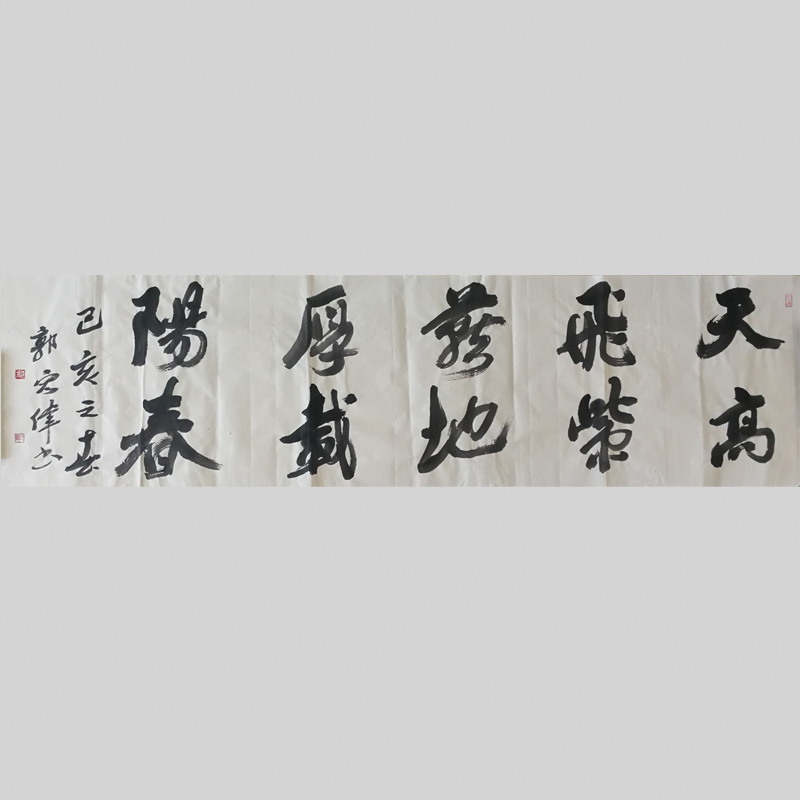 天高
飛紫
燕地
厚載
陽春
己亥之春
郭宏偉书